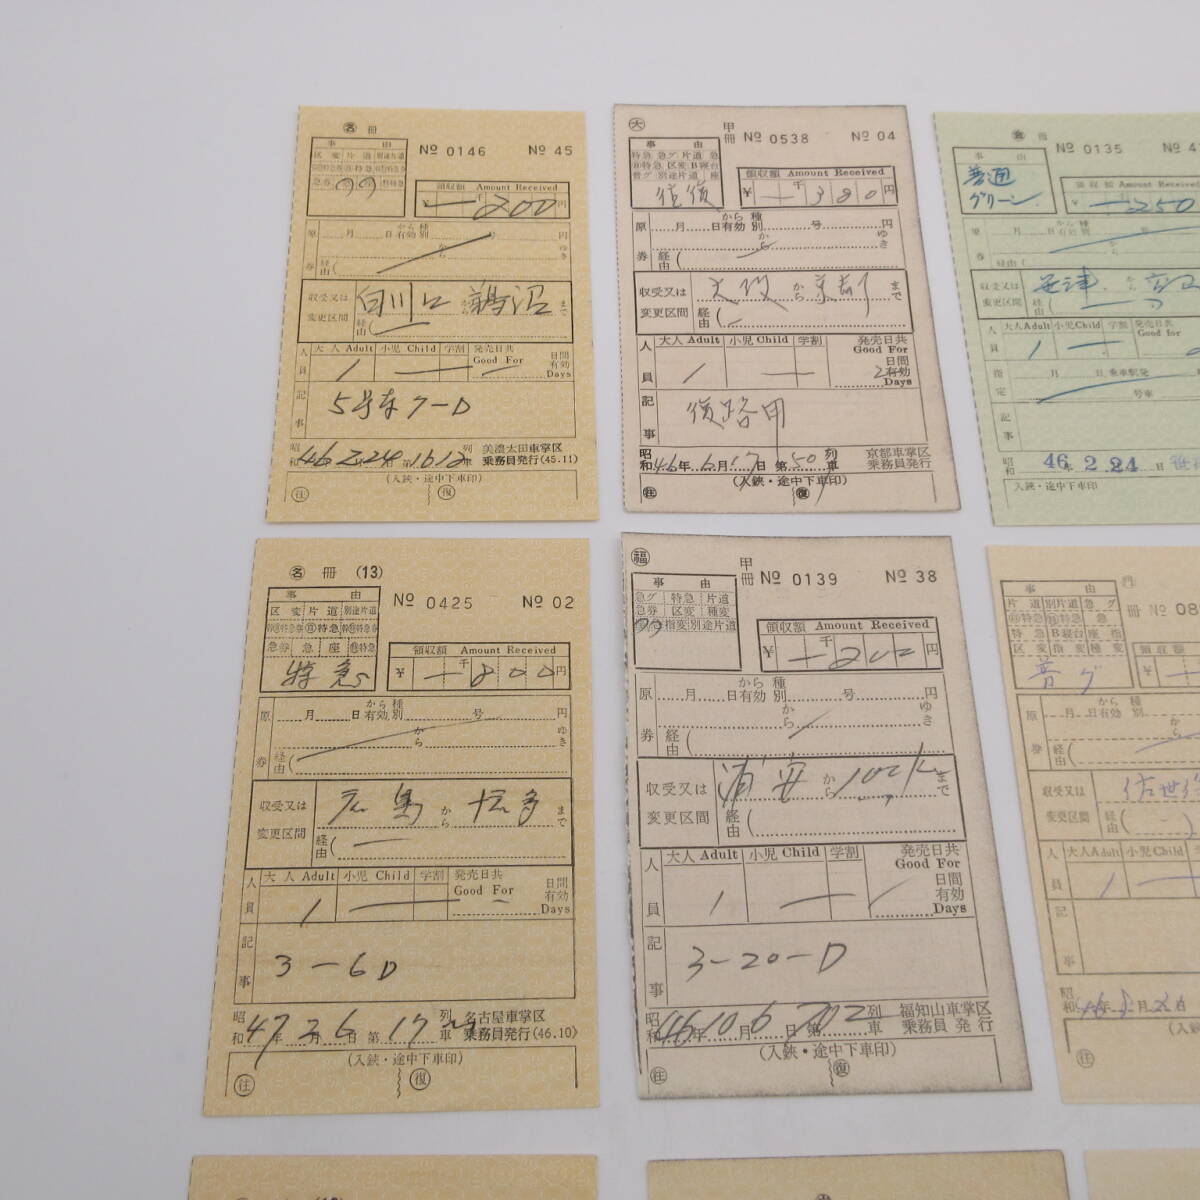 ㊔ 冊
事 由
区変 片道 別途片道
急券
№ 0146 № 45
領収額 Amount Received
¥ 千 200 円
原 月 日 から有効 種別 号 円
から ゆき
券 経由(
収受又は変更区間
白川口 から 鵜沼 まで
経由(
人員
大人 Adult 小児 Child 学割 発売日共 Good For 日間有効 Days
1
記事
5号車7-D
昭和 46 2 24 第 1612 列車
美濃太田車掌区
乗務員発行(45.11)
(入鋏・途中下車印)
往 復
大 甲冊 № 0538 № 04
事 由
特急 急グ 片道 急
特急 区変 B寝台
普グ 別途片道 座
往復
領収額 Amount Received
¥ 千 380 円
原 月 日 から有効 種別 号 円
から ゆき
券 経由(
収受又は変更区間
から 京都 まで
経由(
人員
大人 Adult 小児 Child 学割 発売日共 Good For 日間有効 Days
1 2
記事
復路甲
昭和 46年 6月 17日 第 50 列車
京都車掌区
乗務員発行
(入鋏・途中下車印)
往 復
№ 0135
事 由
普通
グリーン
領収額 Amount Received
¥ 250
原 月 日 から有効 種別 号
券 経由(
収受又は変更区間
笹津 から
経由(
人員
大人 Adult 小児 Child 学割 発売日共 Good for
1
指定 月 日 乗車駅発
号車
記事
昭和 46年 2. 24日
入鋏・途中下車印
名 冊 (13)
事 由
区変 片道 別途片道
急券 急 座
特急
№ 0425 № 02
領収額 Amount Received
¥ 千 800 円
原 月 日 から有効 種別 号 円
から ゆき
券 経由(
収受又は変更区間
広島 から 博多 まで
経由(
人員
大人 Adult 小児 Child 学割 発売日共 Good For 日間有効 Days
1
記事
3-6D
昭和 47年 3月 6日 第 17 列車
名古屋車掌区
乗務員発行(46.10)
(入鋏・途中下車印)
往 復
福 甲冊 № 0139 № 38
事 由
急グ 特急 片道
急券 区変 種変
指変 別途片道
領収額 Amount Received
¥ 千 200 円
原 月 日 から有効 種別 号 円
から ゆき
券 経由(
収受又は変更区間
から まで
経由(
人員
大人 Adult 小児 Child 学割 発売日共 Good For 日間有効 Days
1
記事
3-20-D
昭和 46年 10月 6日 第 702 列車
福知山車掌区
乗務員発行
(入鋏・途中下車印)
往 復
冊 № 08
事 由
片道 別片道 急グ
特急 急
特急 B寝台 座指
区変 指変 種変
普グ
領収額
¥
原 月 日 から有効 種別
から
券 経由(
収受又は変更区間
佐世保
経由(
人員
大人 Adult 小児 Child 学割
1
記事
昭和 46年 月 日
往